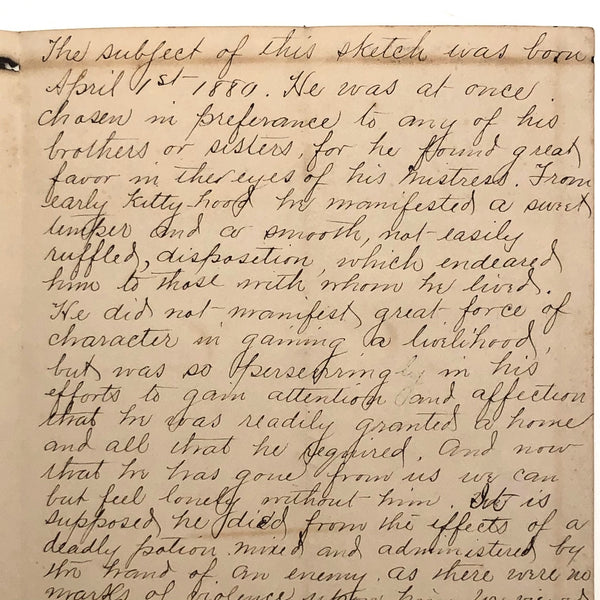 The subject of this sketch was born
April 1st 1880. He was at once
chosen in preferance to any of his
brothers or sisters, for he found great
favor in the eyes of his mistress. From
early Kitty-hood he manifested a sweet
temper and a smooth, not easily
ruffled, disposition, which endeared
him to those with whom he lived.
He did not manifest great force of
character in gaining a livelihood,
but was so perseringly in his
efforts to gain attention and affection
that he was readily granted a home
and all that he required. And now
that he has gone from us we can
but feel lonely without him. It is
supposed he died from the effects of a
deadly potion mixed and administered by
the hand of an enemy as there were no
marks of violence upon him